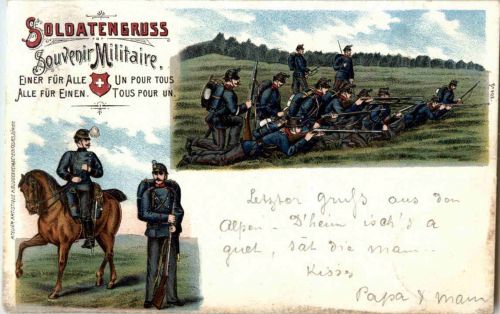 SOLDATENGRUSS
Souvenir Militaire,
EINER FÜR ALLE UN POUR TOUS
ALLE FÜR EINEN. TOUS POUR UN.
Letzter gruß aus den
Alpen - D'heim isch's a
guet, sät die mam..
Kisses
Papa & Mam